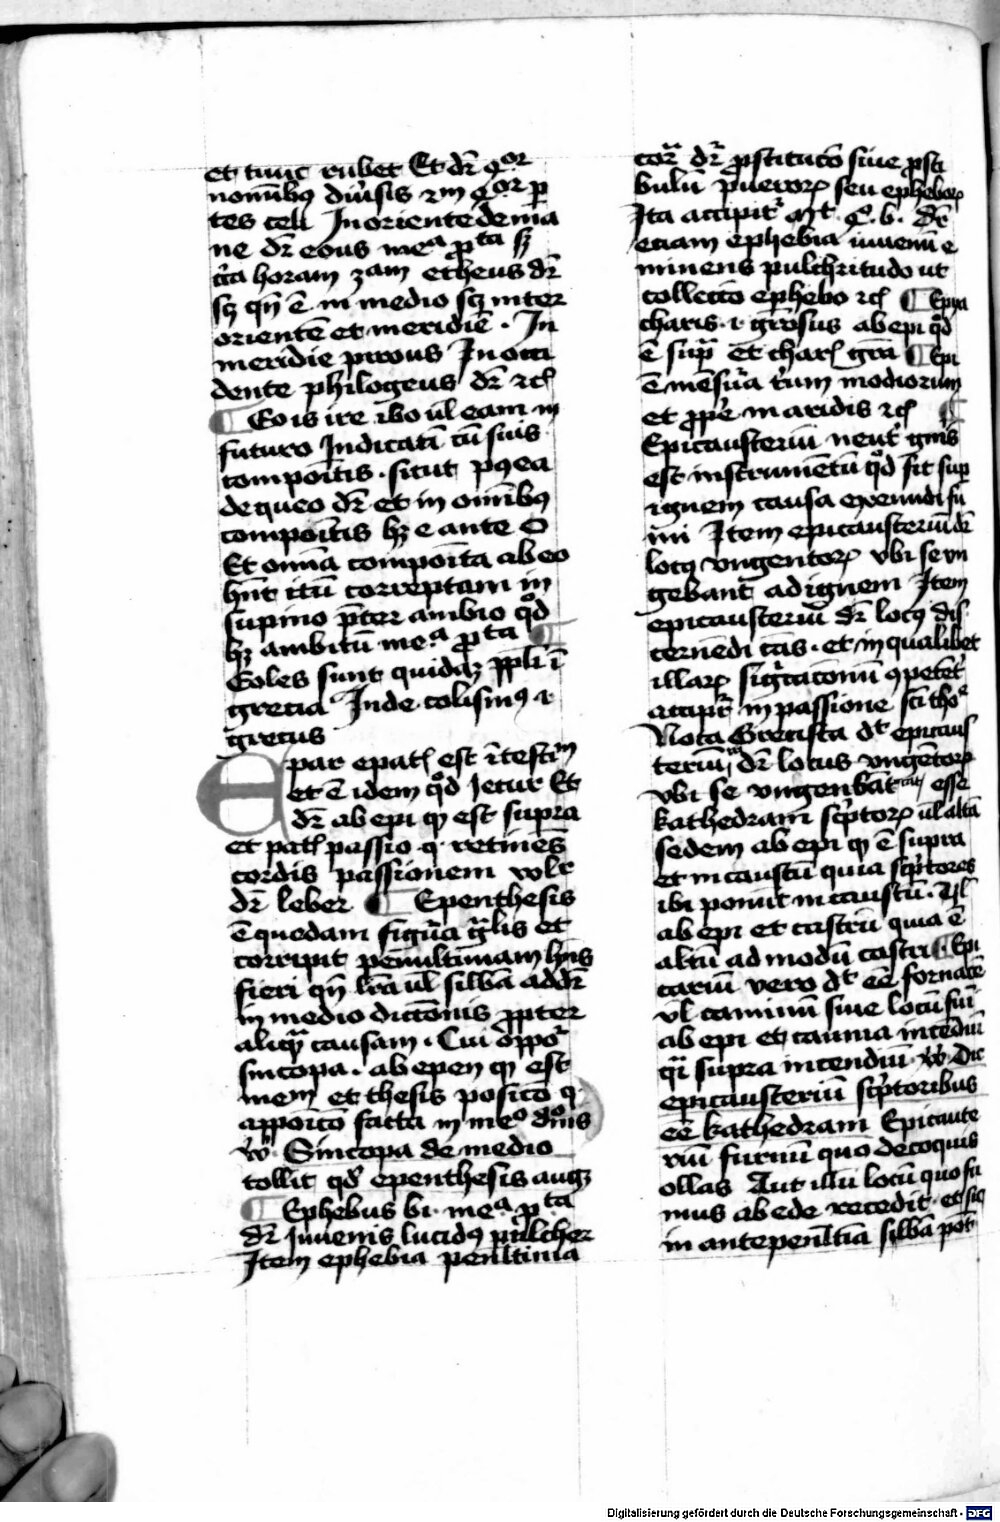 et tunc rubet Et dr̄ qͦor
nomībꝫ diuˀsis ẜm qͦor p̱
tes celi In oriente de ma
ne dr̄ eous meᵃ p̱ta sꝫ
cͥca horam 3am etheus dr̄
sꝫ qn̄ ē in medio sꝫ inter
orientē et meridiē . In
meridie pirous In occi
dente philogeus dr̄ ꝛcꝭ
¶ Eo is ire ibo ul̄ eam in
futuro Indicatī cū suis
compoītis . sicut p̱ꝯ ea
de queo dr̄ et in omībꝫ
compoītis hꝫ e ante o
Et omīa compoīta ab eo
hn̄t itū correptam in
supino p̄ter ambio qͦd
hꝫ ambitū meᵃ p̱ta ¶
Eoles sunt quidaꝫ ppl̄i ī
grecia Inde colisinꝯ .i.
grecus
Epar epatꝭ est ītestīᵐ
et ē idem qͦd Jecur Et
dr̄ ab epi qͥ est supra
et patꝭ passio qͥ retinēs
cordis passionem wlr̄
dr̄ leber ¶ Epenthesis
ē quedam figūa gͣlis et
corripit penultimam hn̄s
fieri qn̄ lr̄a ul̄ silba addr̄
in medio dictōnis ꝓpter
aliqͣ causam . Cui oppoͥ
sincopa . ab epen qͥ est
inem et thesis positō qͥ
appoītō facta in meͦ dōnis
vꝰ Sincopa de medio
tollit qd̄ epenthesis augꝫ
¶ Ephebus bi . meᵃ . p̱ . ta
dr̄ Juuenis lucidꝯ pulcher
Item ephebia penltima
cor̄ dr̄ p̱stitutō siue p̱sti
bulū puerorꝝ seu epheborꝝ
Ita accipitˀ
etiam ephebia iuuenū e
minens pulchritudo ut
collectō ephebo ꝛcꝭ ¶ Epya
charis .i. grōsus ab epi qͦd
ē supͣ et charꝭ grā ¶ Epi
ē mēsūa tͥum modiorum
et ꝓpe in aridis ꝛcꝭ ¶
Epicausteriū neutˀ gn̄is
est instrumētū qͦd fit sup̱
ignem causa exeundi fu
mi Item epicausteriū dr̄
locꝯ vngentorꝝ vbi se vn
gebant ad ignem Item
epicausteriū dr̄ locꝯ dis
cernēdi cās . et in qualibet
illarꝝ sigͥcatōnū ꝯpetētˀ
accipr̄ in passione sc̄i thoᵉ
Nota Grecista dt̄ epicaus
teriū dr̄ locus vngētorꝝ
vbi se vngenbāt esse
kathedram scͥptorꝝ ul̄ altā
sedem ab epi qͥ ē supra
et incaustū quia scͥptores
ibi ponūt incaustū . ul̄
ab epi et castrū quia ē
altū ad modū castri ¶ Epi
cariū vero dt̄ eē fornacē
ul̄ caminū siue locū fūi
ab epi et cauma incēdiū
qͣi supra incendiū vꝰ Dic
epicausteriū scͥptoribus
eē kathedram Epicaute
riū furnū quo decoquis
ollas Aut illū locū quo fu
mus ab ede recedit . et sic
in antepenl̄tia silbā pot̄
Digitalisierung gefördert durch die Deutsche Forschungsgemeinschaft - DFG